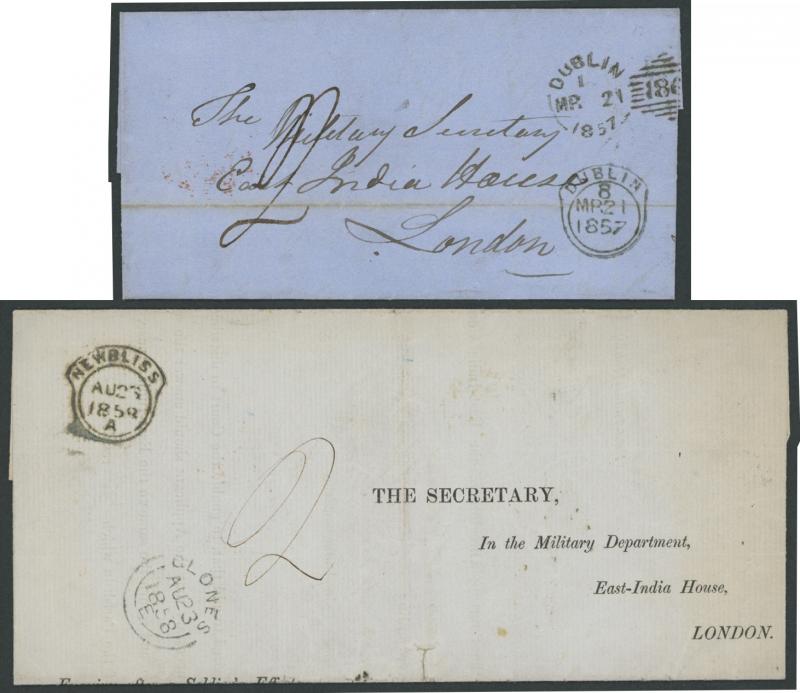 DUBLIN
1
MR 21
1857
186
The Military Secretary
East India House
London
2
DUBLIN
8
MR 21
1857
NEWBLISS
AU 23
1858
A
2
THE SECRETARY,
In the Military Department,
East-India House,
LONDON.
CLONES
AU 23
1858
E